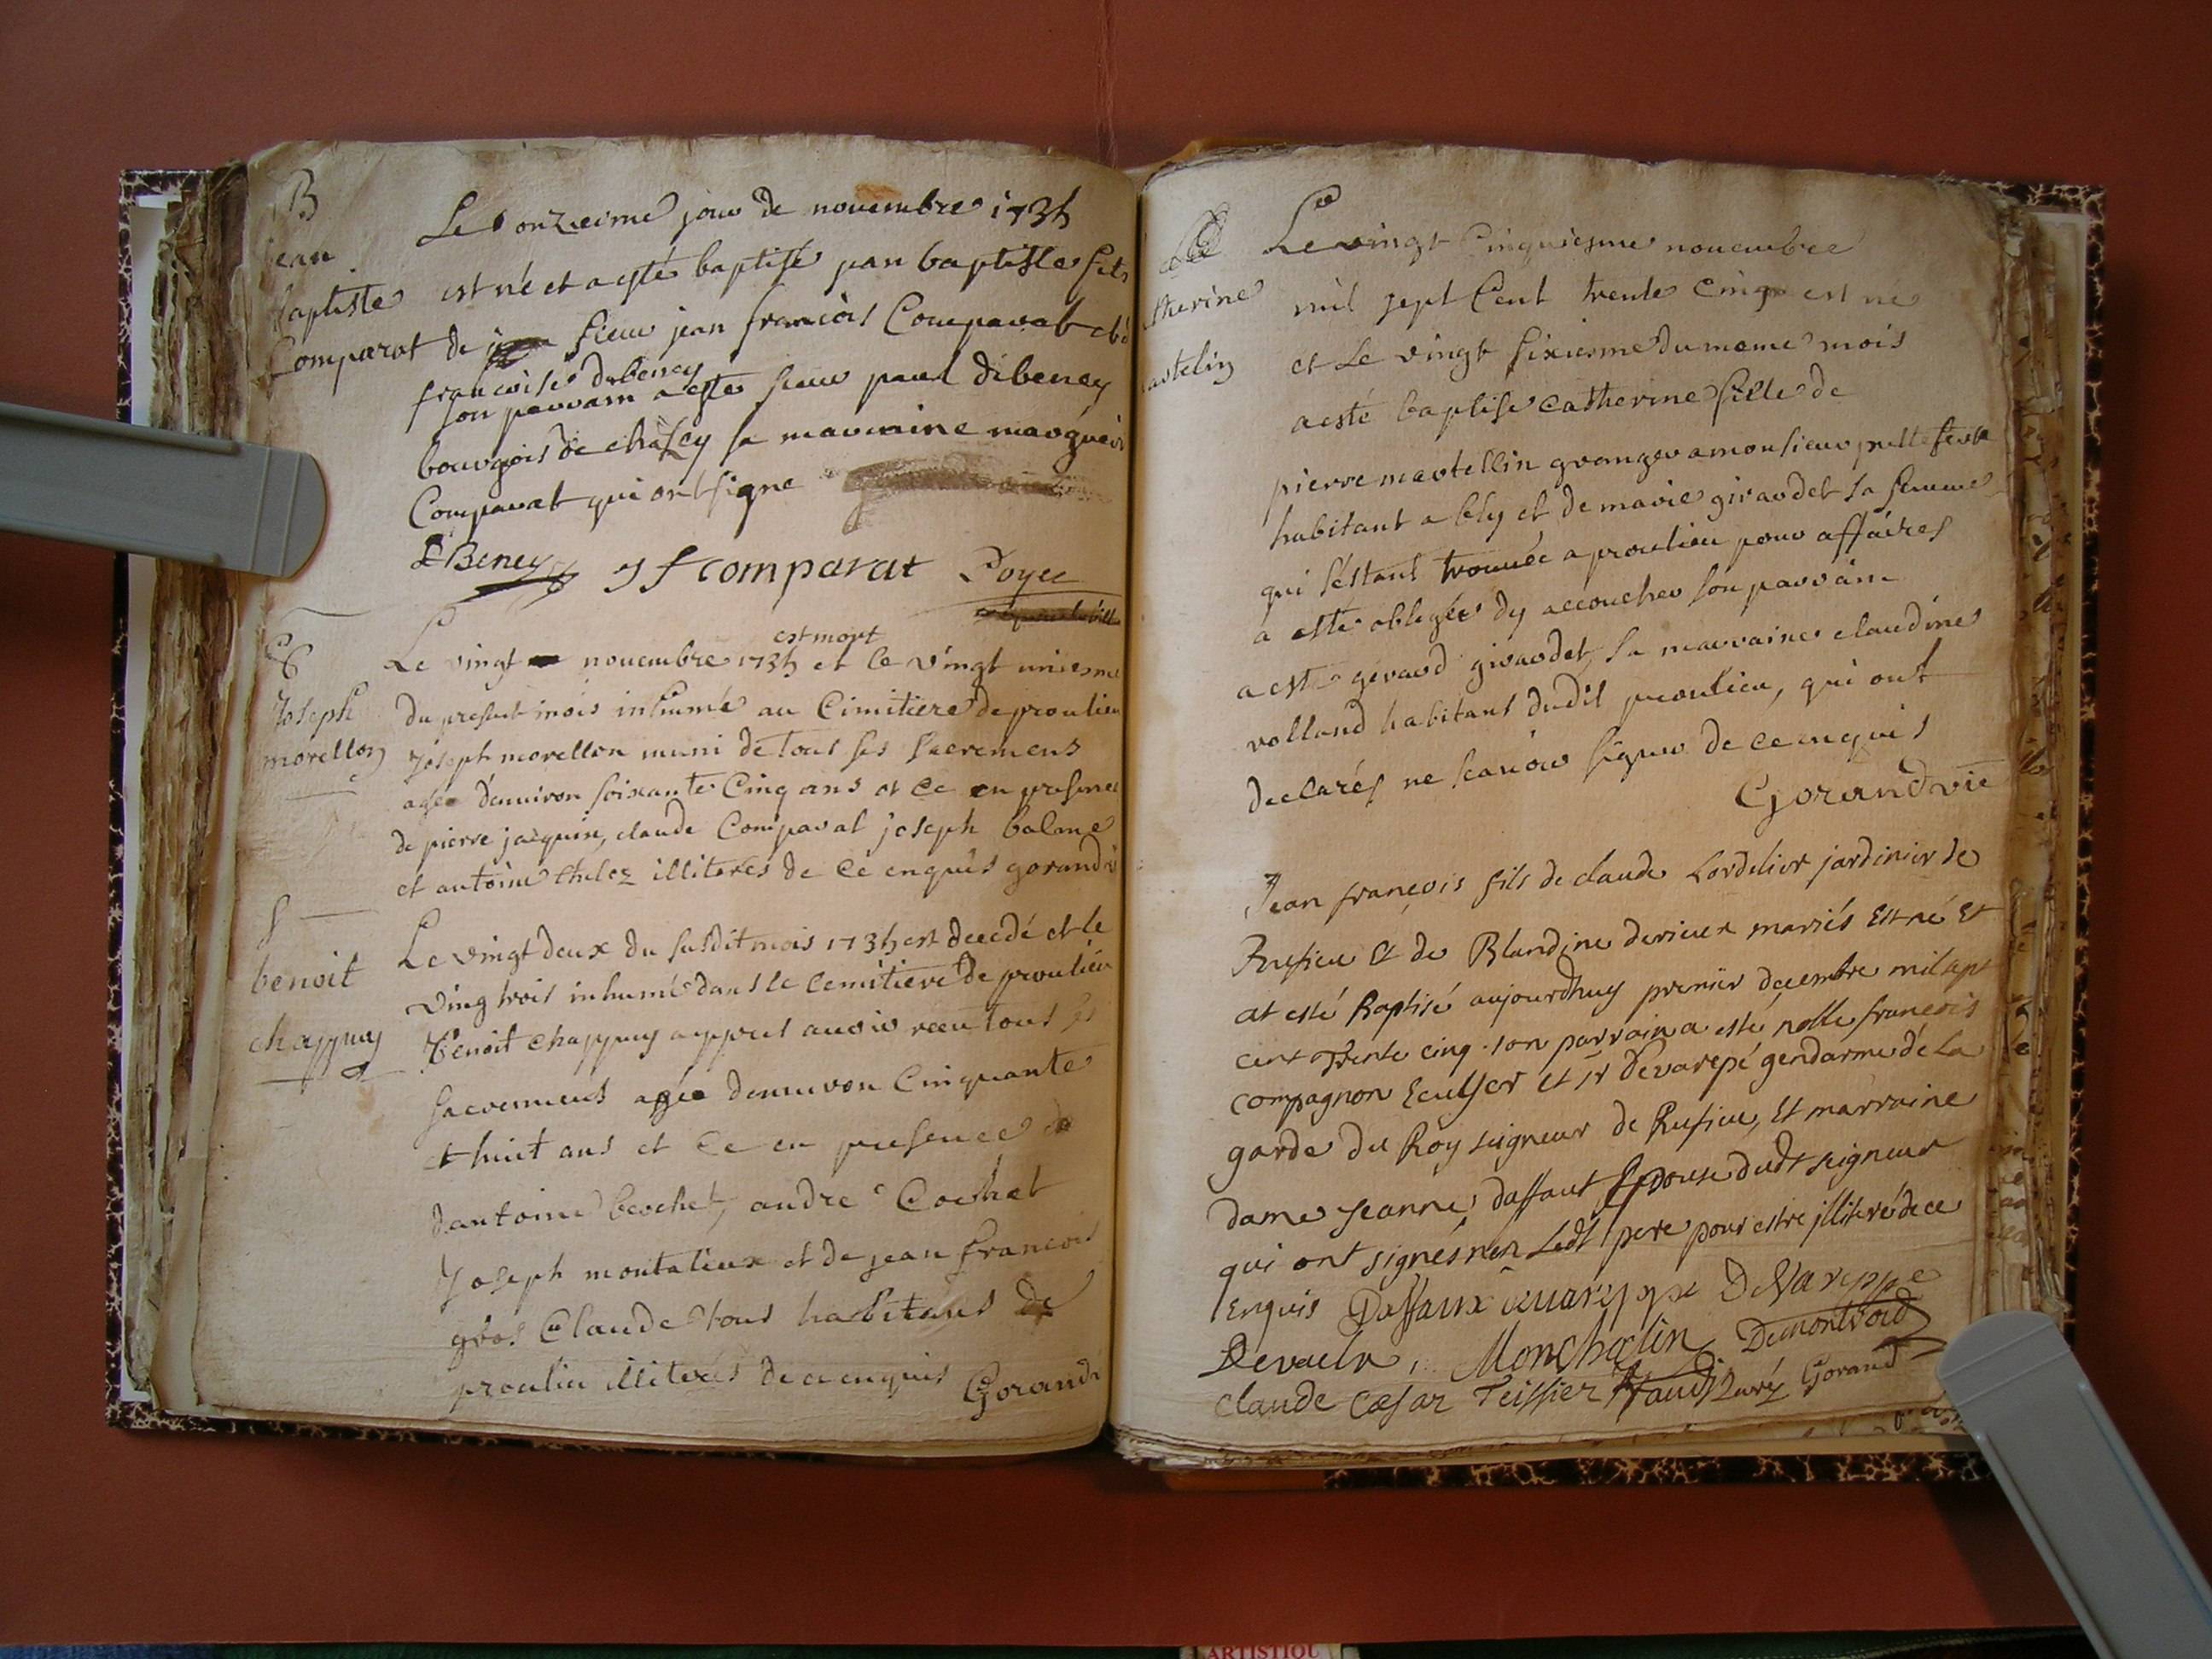 B
jean
baptiste
Comparat
Le onzieime jour de novembre 1735
est né et a esté baptisé jean baptiste fils
de sieur jean francòis Comparat et de
francoise debeney
son parrain a esté sieur paul debeney
bourgois de chasey sa mareine marguerit
Comparat qui ont signe
DBeney J f comparat Poyet
Joseph
morellon
est mort
Le vingt novembre 1735 et le vingt uniesme
du present mois inhumé au Cimitiere de proulieu
Joseph morellon muni de tous ses sacremens
agee denviron soixante Cinq ans et ce en presence
de pierre jacquin, claude Comparat joseph balme
et antoine thelez illiterés de ce enquis gorand vi
benoit
chappuy
Le vingt deux du susdit mois 1735 est decedé et le
ving trois inhumé dans le cemitiere de proulieu
benoit chappuy appres avoir receu tous ses
sacremens agée denviron Cinquante
et huit ans et ce en presence de
dantoine brochet, andre Cochet
Joseph montalieux et de jean francois
gros Claude tous habitans de
proulieu illiterés de ce enquis Gorand
therine
astelin
Le vingt Cinquiesme novembre
mil sept Cent trente Cinq est né
et Le vingt sixiesme du meme mois
a esté baptisé catherine fille de
pierre martellin granger a monsieur
habitant a bly et de marie girardet sa femme
qui séstant trouvée a proulieu pour affaires
a esté obligée dy accoucher son parrain
a esté gerard girardet, sa marraine claudine
volland habitans dudit proulieu, qui ont
declarés ne scavoir signer de ce enquis
Gorand vic
Jean françois fils de claude Lordelier jardinier de
Rufieu et de Blandine derieux mariés Est né Et
at esté Baptisé aujourdhuy premier decembre mil sept
cent Trente cinq. son parrain a esté noble francois
compagnon Ecuyer et sr devarepé gendarme de La
garde du Roy seigneur de Rufieu, Et marraine
dame Jeanne daffaut Epouse dudt seigneur
qui ont signés non Ledt pere pour estre jlliteré de ce
Enquis Daffaux DeVareppe
Devaulx, Monchalin Demontroid
claude Cæsar Teissier Curé Gorand
ARTISTIQU